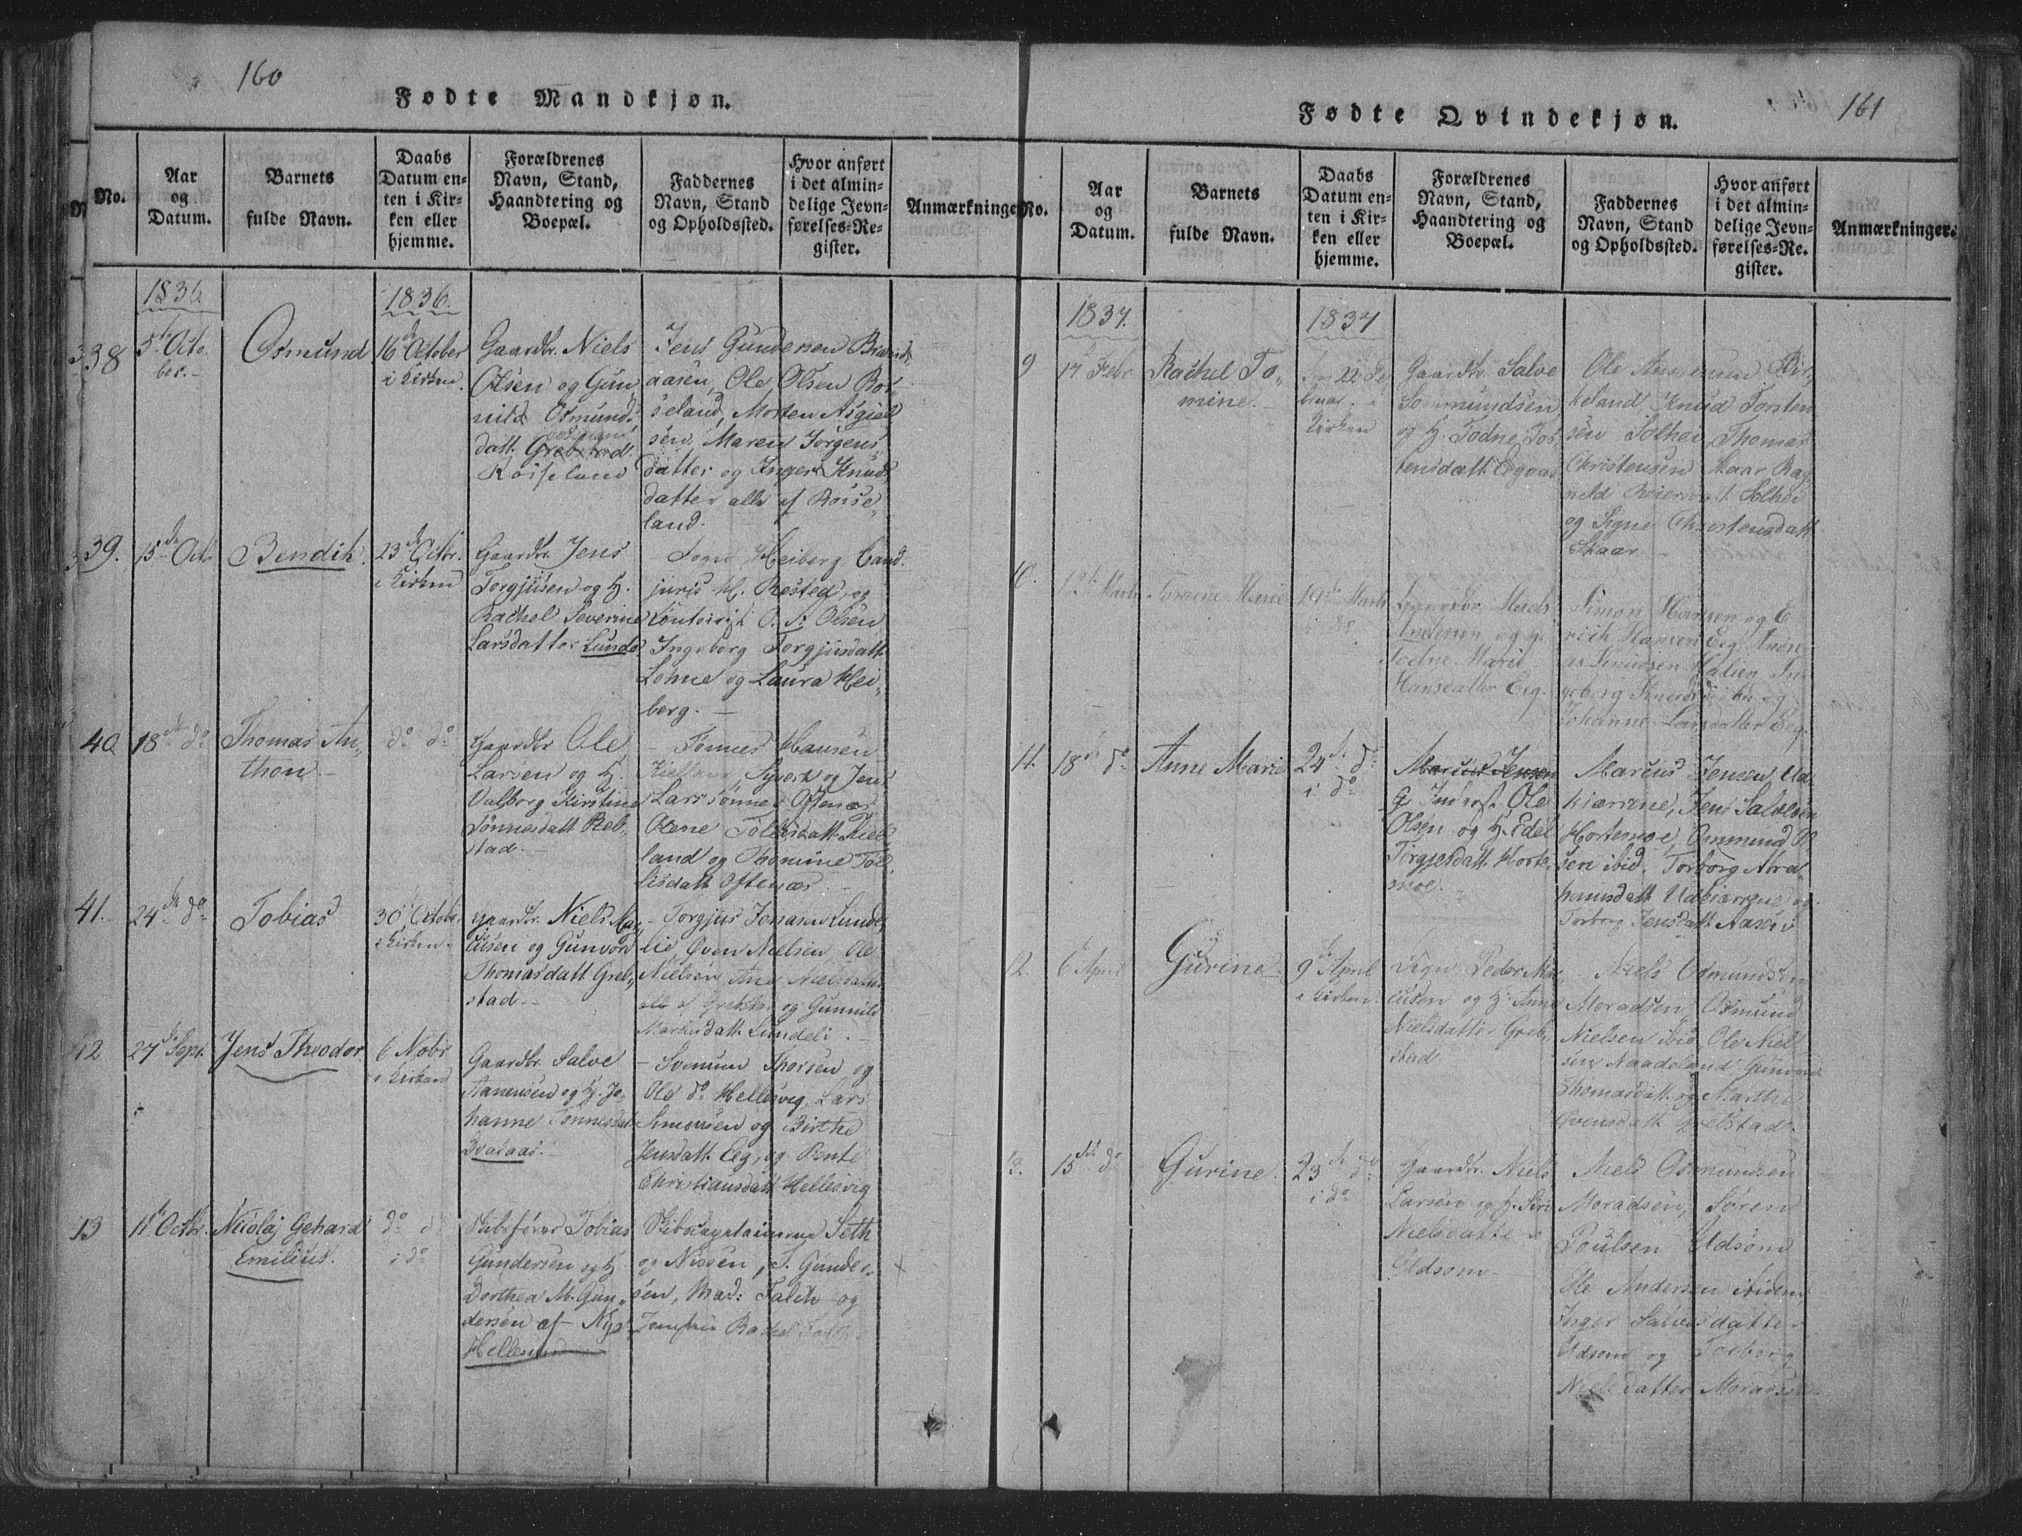 160
Fødte Mandkjøn.
No.
Aar
og
Datum.
Barnets
fulde Navn.
Daabs
Datum en-
ten i Kir-
ken eller
hjemme.
Forældrenes
Navn, Stand,
Haandtering og
Boepæl.
Faddernes
Navn, Stand
og Opholdssted.
Hvor anført
i det almin-
delige Jevn-
førelses-Re-
gister.
Anmærkninger
1836
1836.
38
5te Octo-
ber.
Osmund
16de October
i Kirken
Gaardbr. Niels
Olsen og Gun
nild Osmunds
datt.
Roiseland
Jens Gundersen
aasen, Ole Olsen Roi
seland, Morten Asgiel
sen, Maren Jørgens
datter og Inger Knuds
datter alle af Roise-
land.
39.
15de Octo
Bendik
23de Octbr.
i Kirken
Gaardbr. Jens
Torgjusen og H.
Rachel Severine
Larsdatter Lunde
Heiberg Cand.
juris H. Rested og
O. A. Olsen
Ingeborg Torgjusdatt
Lohne og Laura Hei-
berg. —
40
18de do
Thomas An-
thon —
do do
Gaardbr Ole
Larsen og H.
Valborg Kirstine
Tønnesdatt Reb
stad. —
— Tønnes Hansen
Syvert og Jens
Larssønner Oftenæs
Olene Tollisdatt Kiel
land og Thomine Tol
lisdatt Oftenæs
41.
24de do
Tobias
30 Octobr
i Kirken
Gaardbr. Niels Mar
cusen og Gunvord
Thomasdatt Greb-
stad —
— Torgjus Jonasen Lunde
lie, Øven Nielsen, Ole
Nielsen, Ane Nielsdatter
alle af og Gunnild
Marcusdatt Lundeli
12
27de Sept.
Jens Theodor
6 Nobr
i Kirken
Gaardbr Salve
Aanensen og H. Jo-
hanne Tønnesdat
— Thorsen og
Ole do Hellesvig, Lars
Simonsen og Birthe
Jensdatt Eeg, og Bente
Christiansdatt Hellesvig
13
11te Octbr
Nicolaj Gehard
Emilius.
do d
i do
Skibsfører Tobias
Gundersen og H
Dorthea M. Gun-
dersen af Nye
Hellesund
Skibscaptainerne Seth
og Nissen, T. Gunder-
sen, Mad: Falch og
Jomfru Rachel
161
Fødte Qvindekjøn.
No.
Aar
og
Datum.
Barnets
fulde Navn.
Daabs
Datum en-
ten i Kir-
ken eller
hjemme.
Forældrenes
Navn, Stand,
Haandtering og
Boepæl.
Faddernes
Navn, Stand
og Opholdssted.
Hvor anført
i det almin-
delige Jevn-
førelses-Re-
gister.
Anmærkninger.
1837.
1837
9
17 Febr
Rachel To-
mine.
22 Fe
bruar i
Kirken
Gaardbr. Salve
og H. Todne Tor
tensdatt
Ole
keland Knud Torsten
sen Solhei, Thomas
Christensen Skaar Rag-
nild Solhei
og Signe Christensdatt
Skaar
10.
12te Marts
Tomine Marie
19de Marts
i do
Gaardbr. Mads
Andersen og H
Todne Marie
Hansdatter Eeg.
Simon Hansen og E
rich Hansen Eeg
Knudsen
og
Johanne Larsdatter Eeg
11.
18de do
Anne Marie
24de do
i do
Marcus Jensen
G Inderst Ole
Olsen og H. Edel
Torgjersdatt Horte
moe.
Marcus Jensen Ud
kiærrene, Jens Salvesen
Hortemoe Ommund O
sen ibid. Torborg Abra
hamsdatt Udkiærrene og
Torborg Jensdatt Aasen
12.
6 April
Gurine
9de April
i Kirken.
Peder Mar
cusen og H. Anne
Nielsdatter Greb
stad
— Niels Osmundsen
Moradsen, Osmund
Nielsen ibid, Ole Niel
sen Naadeland Gunvord
Thomasdatt og Marthe
Øvensdatt
13.
15de do
Gurine.
23de do
i do
Gaardbr. Niels
Larsen og H. Siri
Nielsdatter
Udsom
Niels Osmundsen
Moradsen, Søren
Poulsen Udsom
Ole Andersen ibidem
Inger Salvesdatter
Udsom og Torborg
Nielsdatter Moradsen